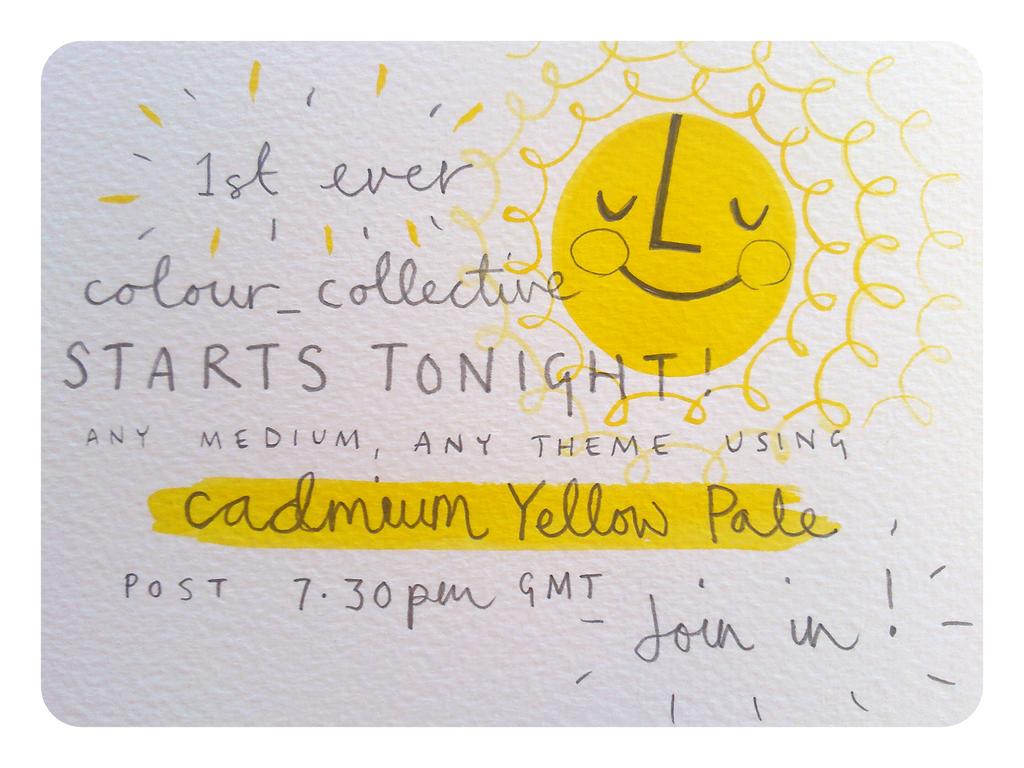 1st ever
colour_collective
STARTS TONIGHT!
ANY MEDIUM, ANY THEME USING
cadmium Yellow Pale
POST 7.30pm GMT
Join in!